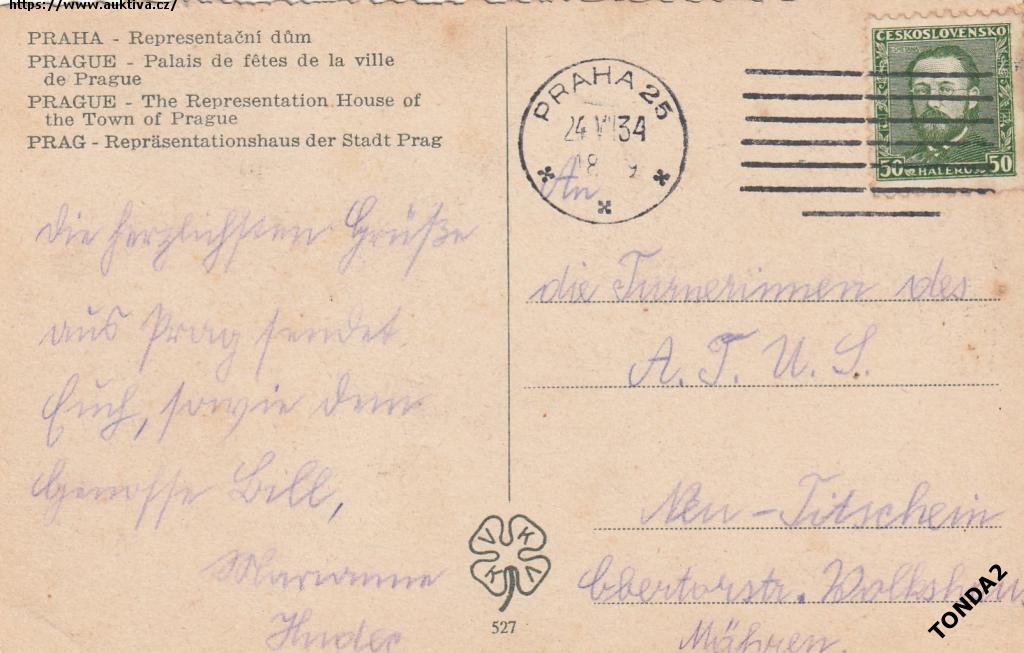 https://www.auktiva.cz/
PRAHA - Representační dům
PRAGUE - Palais de fêtes de la ville
de Prague
PRAGUE - The Representation House of
the Town of Prague
PRAG - Repräsentationshaus der Stadt Prag
die herzlichsten Grüße
aus Prag sendet
Euch, sowie dem
Genosse Bill,
Marianne
Hudec
VKVK
527
PRAHA 25
24 VII34
18 9
ČESKOSLOVENSKO
50 HALÉŘŮ 50
An
die Turnerinnen des
A. T. U. S.
Neu-Titschein
Obertorstr. Volkshaus
Mähren.
TONDA2